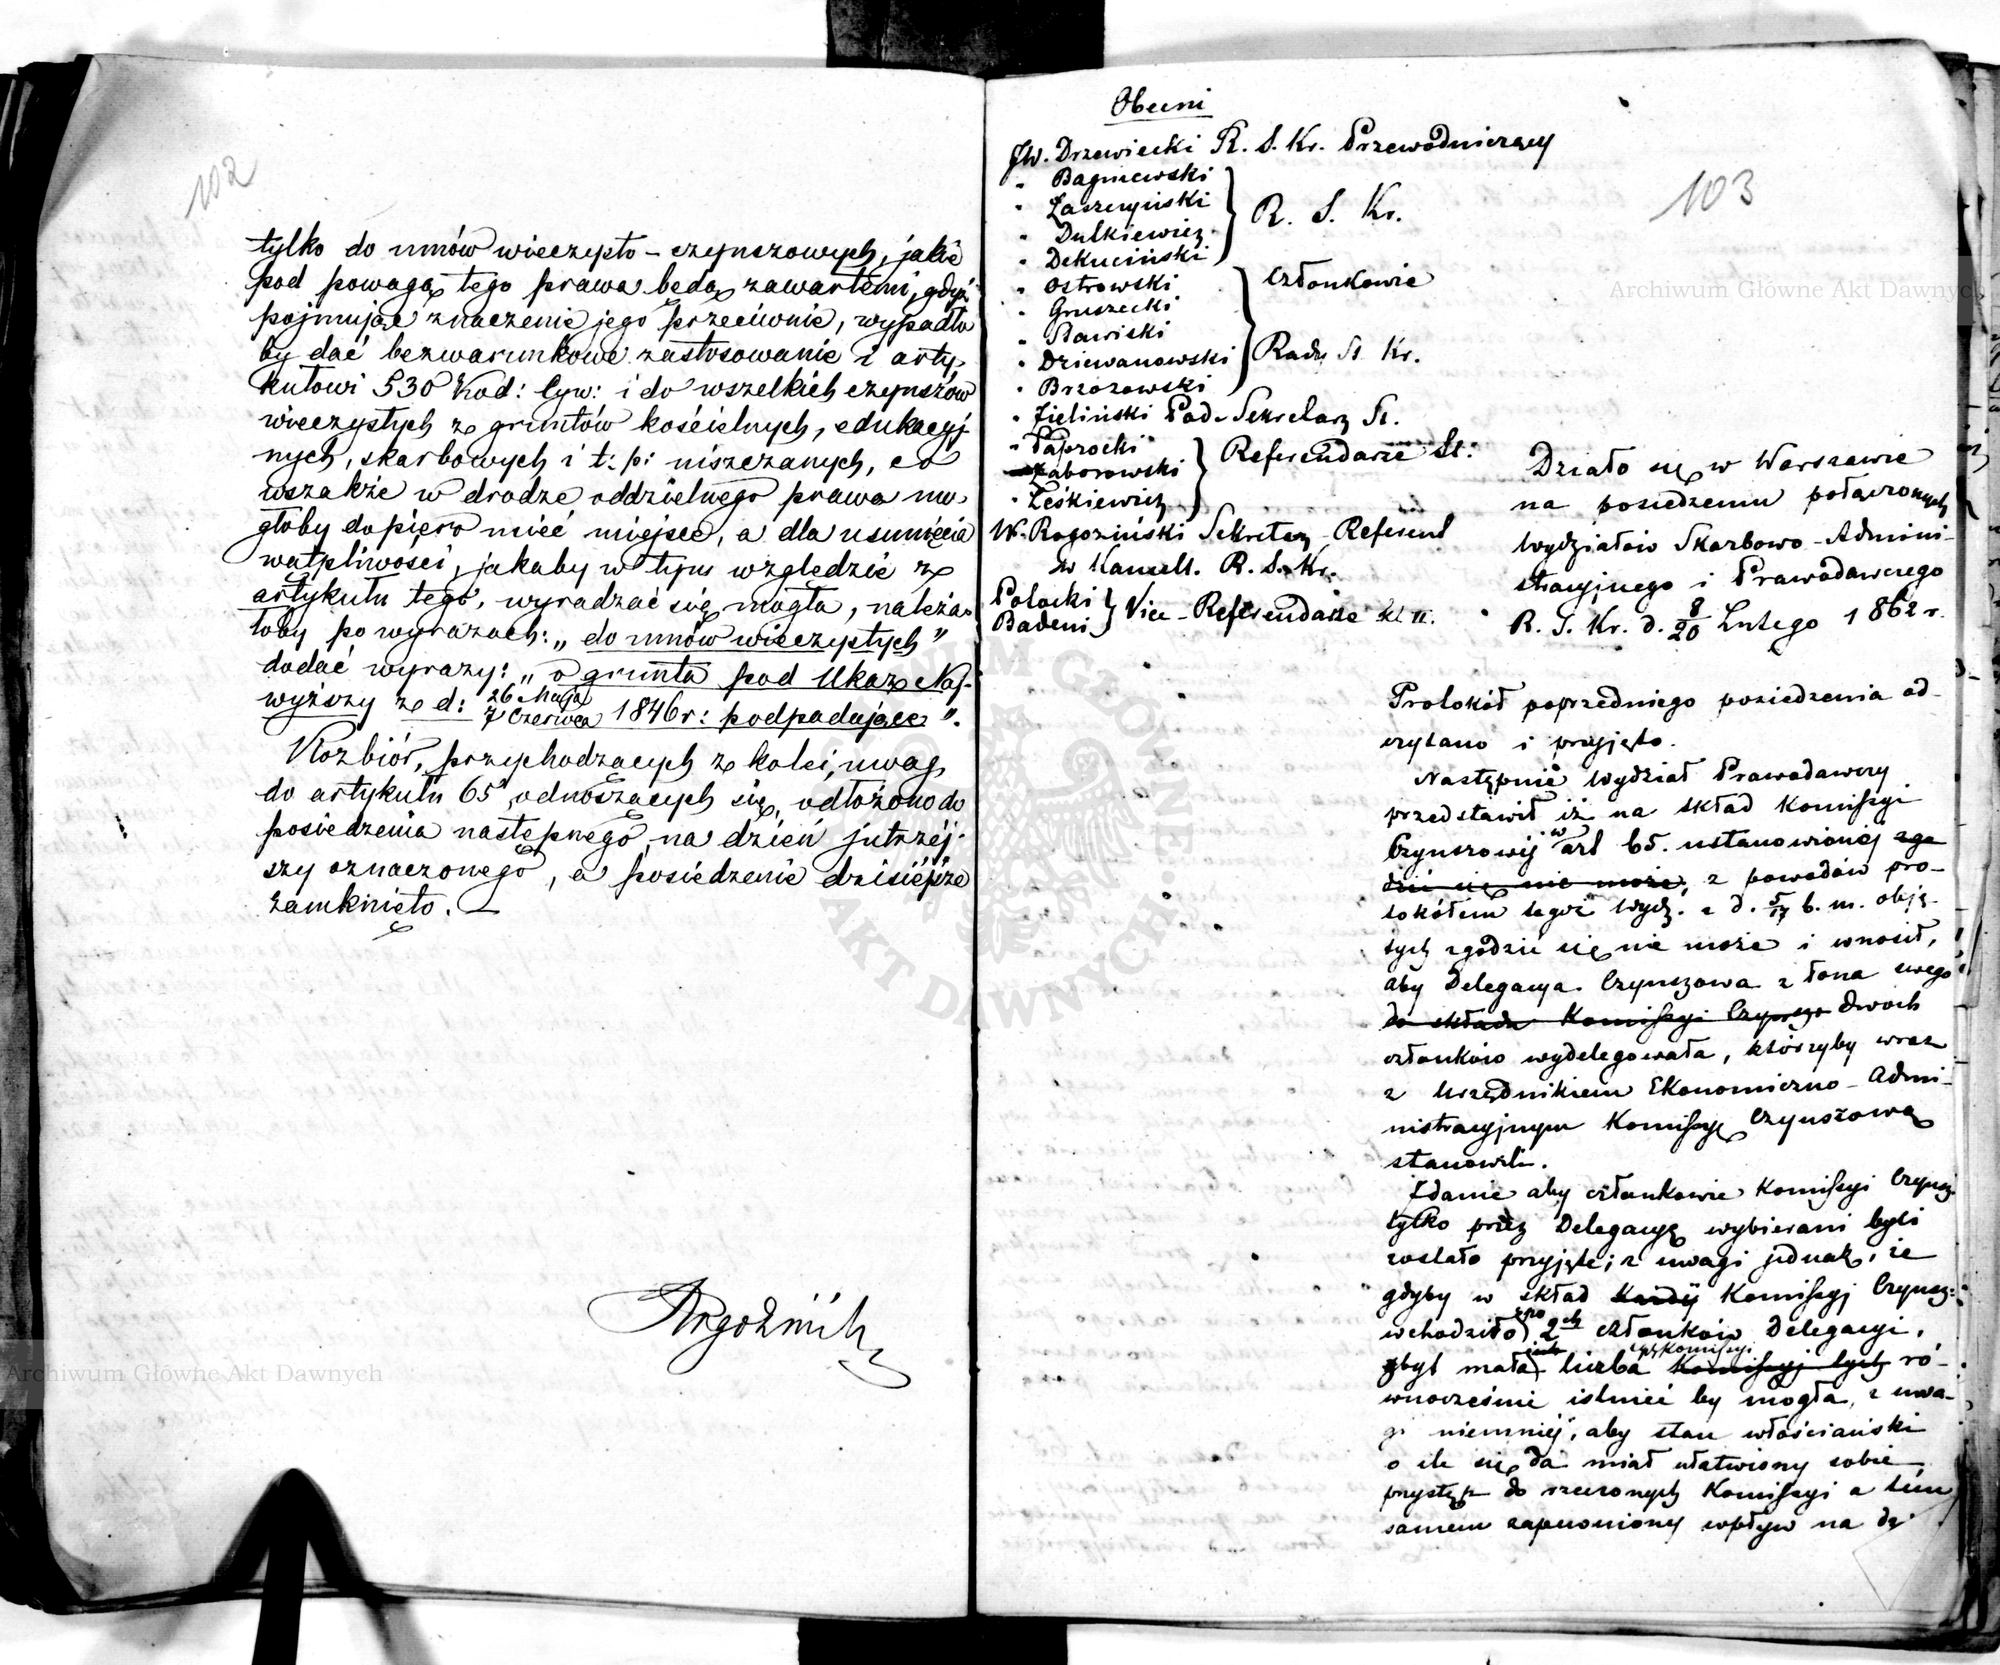 102
tylko do umów wieczysto-czynszowych, jakie
pod powagą tego prawa będą zawartemi, gdyż
pojmując znaczenie jego przeciwnie, wypadło
by dać bezwarunkowe zastosowanie i arty-
kułowi 530 Kod: Cyw: i do wszelkich czynszów
wieczystych z gruntów kościelnych, edukacyj
nych, skarbowych i t: p: uiszczanych, co
wszakże w drodze oddzielnego prawa mo-
głoby dopiero mieć miejsce, a dla usunięcia
wątpliwości, jakaby w tym względzie z
artykułu tego, wyradzać się mogła, należa-
łoby po wyrazach: „do umów wieczystych"
dodać wyrazy: „o grunta pod Ukaz Naj-
wyższy z d: 26 Maja / 7 Czerwca 1846 r: podpadające".
Rozbiór, przychodzących z kolei, uwag
do artykułu 65 odnoszących się, odłożono do
posiedzenia następnego na dzień jutrzej-
szy oznaczonego, a posiedzenie dzisiejsze
zamknięto.
Archiwum Główne Akt Dawnych
103
Obecni
JW. Drzewiecki R. S. Kr. Przewodniczący
" Bagniewski
" Łaszczyński
" Dutkiewicz
" Dekuciński
R. S. Kr.
" Ostrowski
" Gruszecki
" Sławiski
" Dziewanowski
" Brzozowski
Członkowie
Rady St. Kr.
" Zieliński Pod-Sekretarz St.
" Paprocki
" Zaborowski
" Leśkiewicz
Referendarze St:
W. Rogoziński Sekretarz-Referent
w Kancell. R. S. Kr.
Potocki
Badeni
Vice-Referendarze kl II.
Działo się w Warszawie
na posiedzeniu połączonych
Wydziałów Skarbowo-Admini-
stracyjnego i Prawodawczego
R. S. Kr. d. 8/20 Lutego 1862 r.
Protokół poprzedniego posiedzenia od-
czytano i przyjęto.
Następnie Wydział Prawodawczy
przedstawił iż na skład Komissyi
Czynszowej w art 65. ustanowionej zgo
dzić się nie może, z powodów pro-
tokółem tegoż Wydz. z d. 5/17 b. m. obję-
tych zgodzić się nie może i wnosił,
aby Delegacya Czynszowa z łona swego
do składu Komissyi Czynszo dwóch
członków wydelegowała, którzyby wraz
z Urzędnikiem Ekonomiczno-Admi-
nistracyjnym Komissyę Czynszową
stanowili.
Zdanie aby członkowie Komissyi Czynsz.
tylko przez Delegacyę wybierani byli
zostało przyjęte; z uwagi jednak, że
gdyby w skład każdej Komissyj Czynsz:
wchodziło po 2ch członków Delegacyi,
zbyt mała liczba tych Komissyi Komissyj tych ró-
wnocześnie istnieć by mogła, z uwa-
gi niemniej, aby stan włościański
o ile się da miał ułatwiony sobie
przystęp do rzeczonych Komissyi a tém
samem zapewniony wpływ na
Archiwum Główne Akt Dawnych
ARCHIWUM GŁÓWNE AKT DAWNYCH